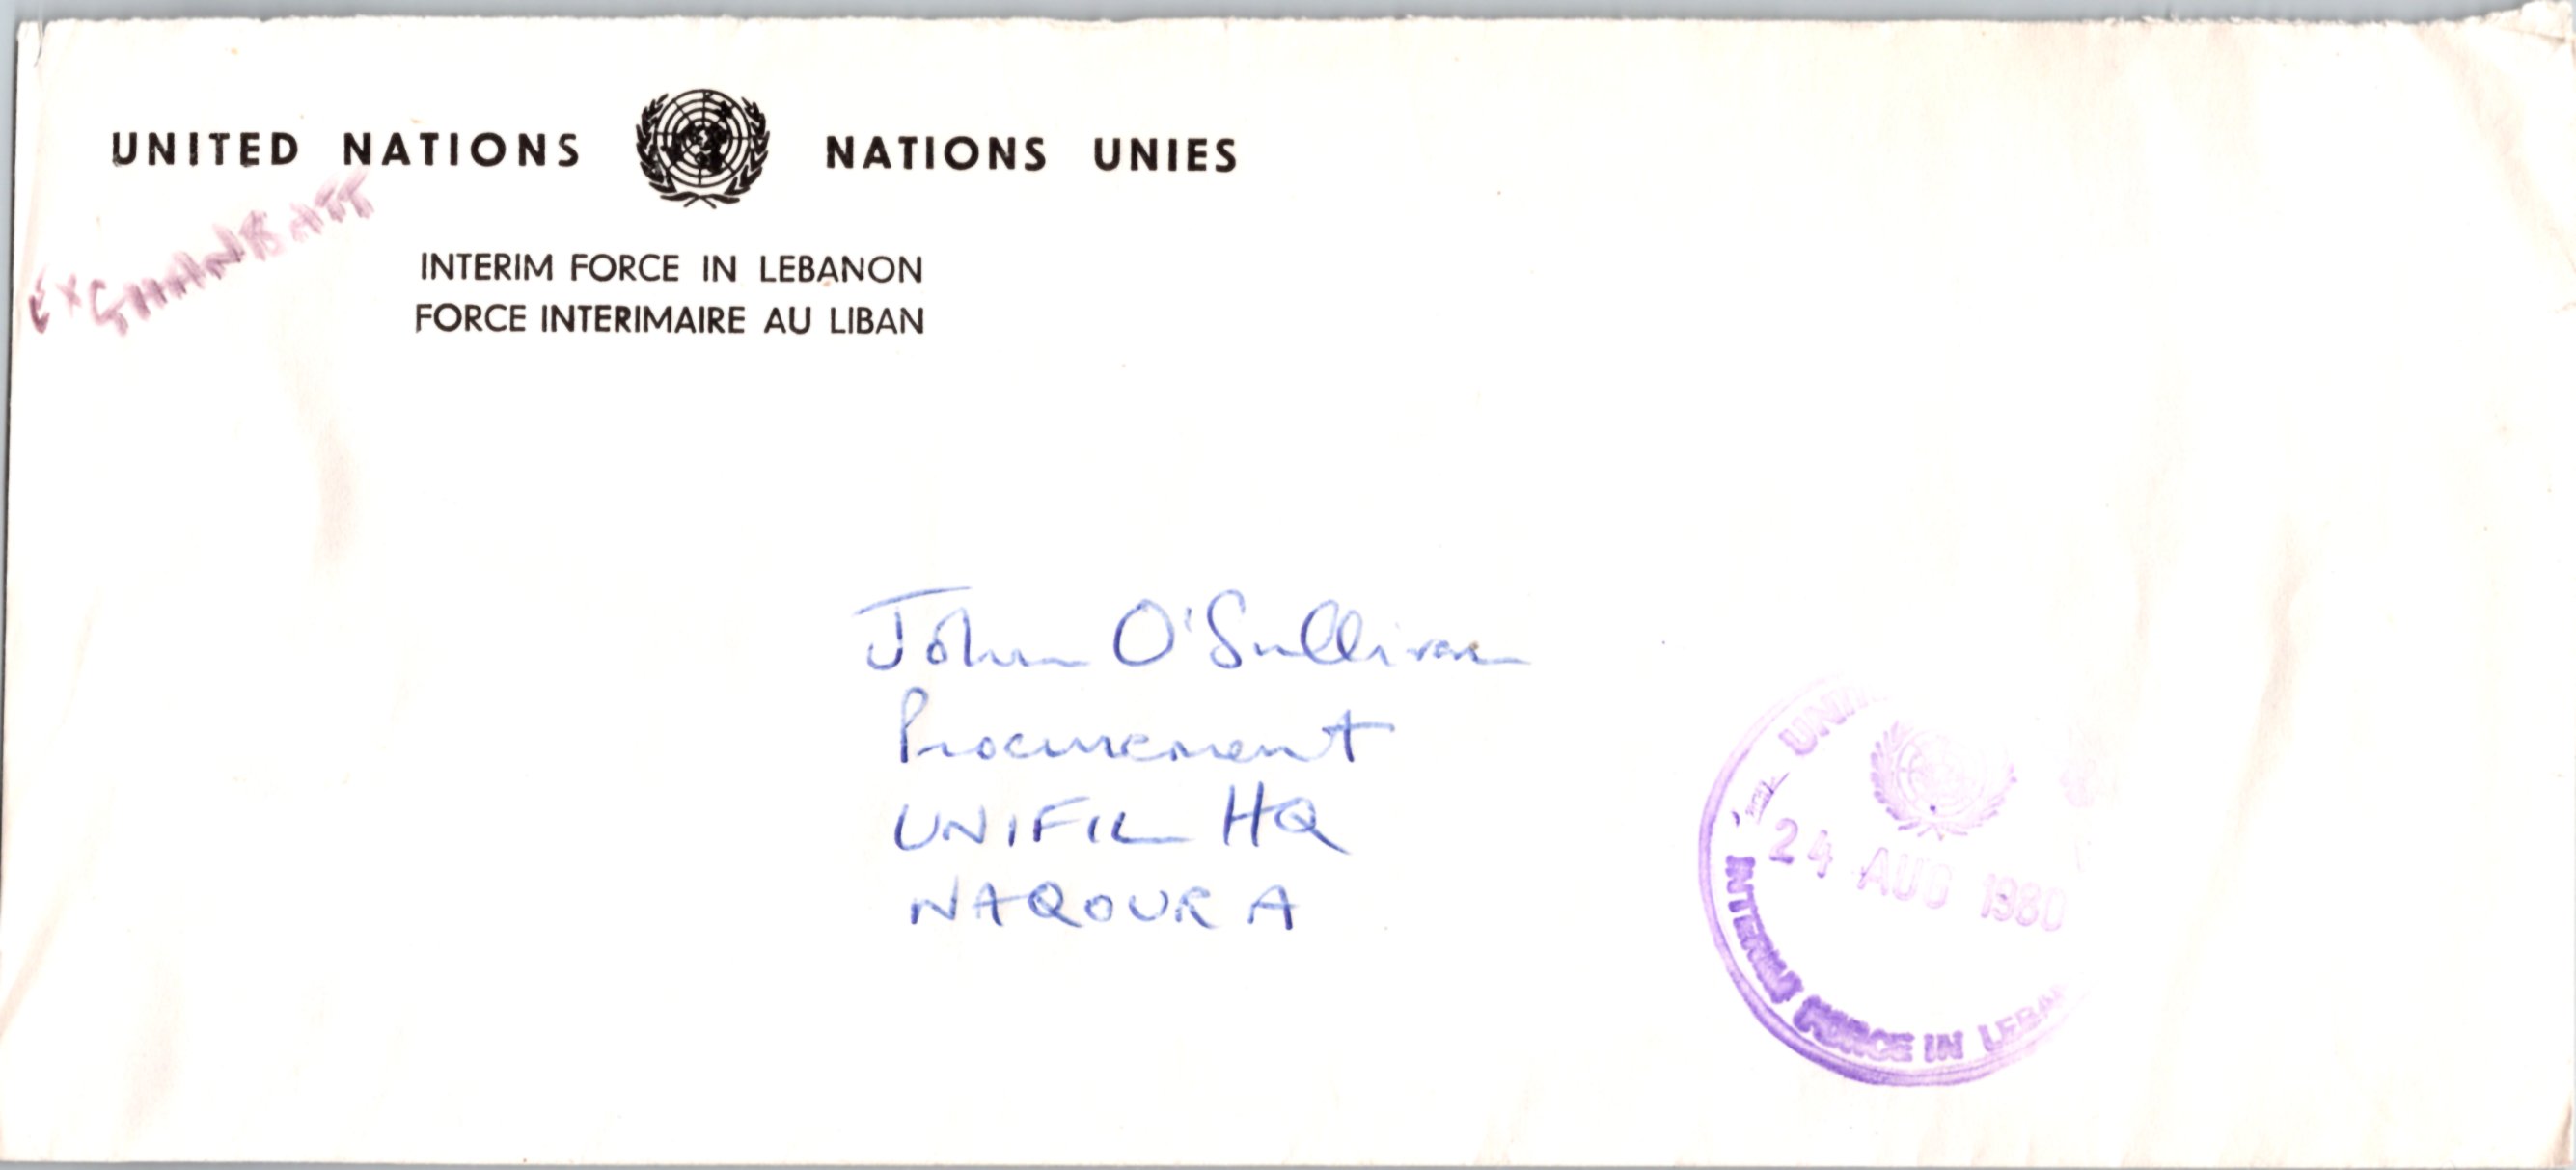 UNITED NATIONS NATIONS UNIES
EX GHANBATT
INTERIM FORCE IN LEBANON
FORCE INTERIMAIRE AU LIBAN
John O'Sullivan
Procurement
UNIFIL HQ
NAQOURA
24 AUG 1980
INTERIM FORCE IN